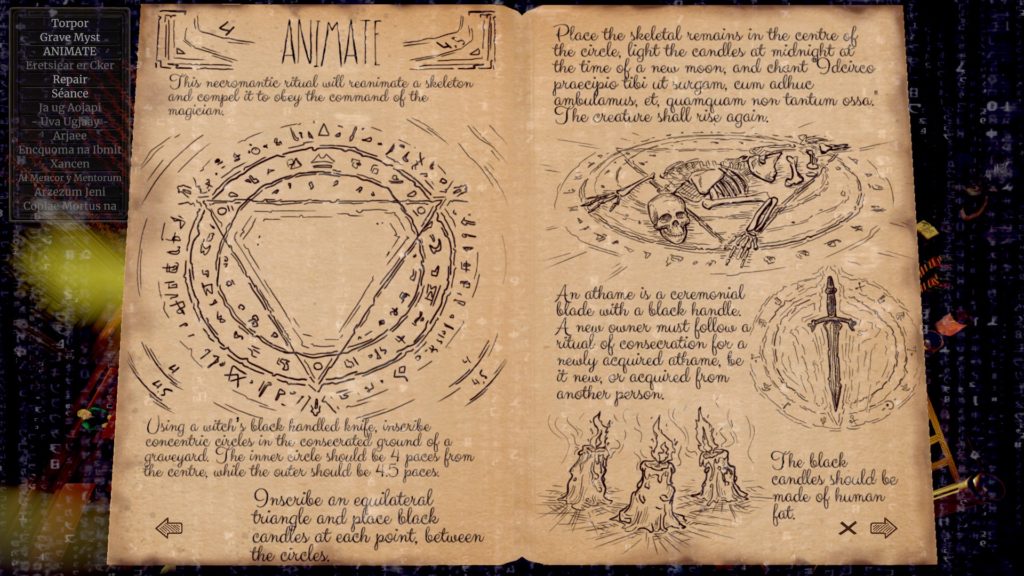 Torpor
Grave Myst
ANIMATE
Eretsigar er Cker
Repair
Séance
Ja ug Aojapi
Uva Ugjaay
Arjaee
Encquoma na Ibmit
Xancen
Al Mencor y Mentorum
Arzezum Jeni
Coplae Mortus na
4
ANIMATE
4.5
This necromantic ritual will reanimate a skeleton
and compel it to obey the command of the
magician.
4
4.5
4
4.5
Using a witch's black handled knife, inscribe
concentric circles in the consecrated ground of a
graveyard. The inner circle should be 4 paces from
the centre, while the outer should be 4.5 paces.
Inscribe an equilateral
triangle and place black
candles at each point, between
the circles.
Place the skeletal remains in the centre of
the circle, light the candles at midnight at
the time of a new moon, and chant "Idcirco
praecipio tibi ut surgam, cum adhuc
ambulamus, et, quamquam non tantum ossa."
The creature shall rise again.
An athame is a ceremonial
blade with a black handle.
A new owner must follow a
ritual of consecration for a
newly acquired athame, be
it new, or acquired from
another person.
The black
candles should be
made of human
fat.